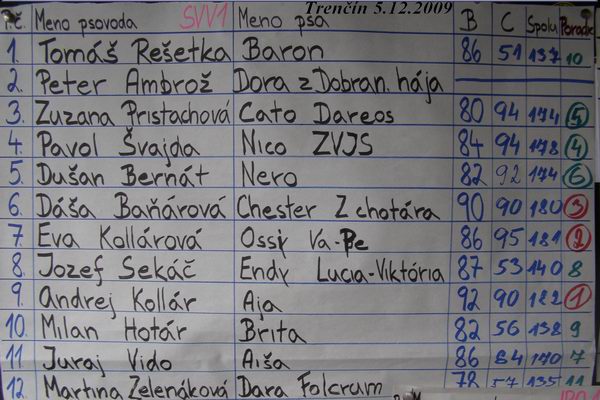 Trenčín 5.12.2009
Meno psovoda SVV1 Meno psa B C Spolu Poradie
1. Tomáš Rešetka Baron 86 51 137 10
2. Peter Ambrož Dora z Dobran. hája
3. Zuzana Pristachová Cato Dareos 80 94 174 5
4. Pavol Švajda Nico ZVJS 84 94 178 4
5. Dušan Bernát Nero 82 92 174 6
6. Dáša Baňárová Chester Z chotára 90 90 180 3
7. Eva Kollárová Ossy Va-Pe 86 95 181 2
8. Jozef Sekáč Endy Lucia-Viktória 87 53 140 8
9. Andrej Kollár Aja 92 90 182 1
10. Milan Hotár Brita 82 56 138 9
11 Juraj Vido Aiša 86 84 170 7
12. Martina Zelenáková Dara Folcrum 78 57 135 11